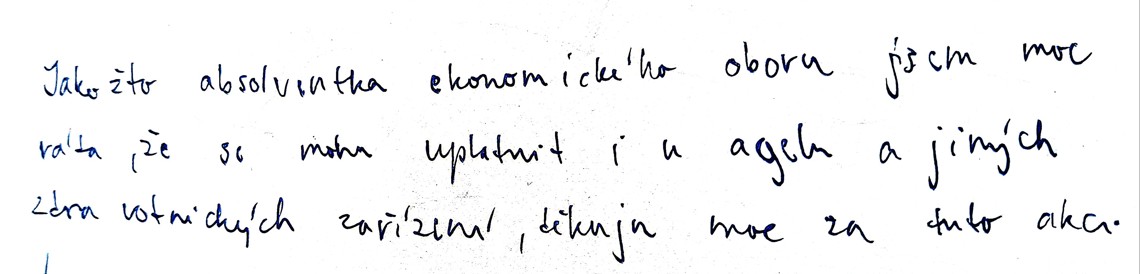 Jakožto absolventka ekonomického oboru jsem moc
ráda, že se mohu uplatnit i u agelu a jiných
zdravotnických zařízení, děkuju moc za tuto akci.